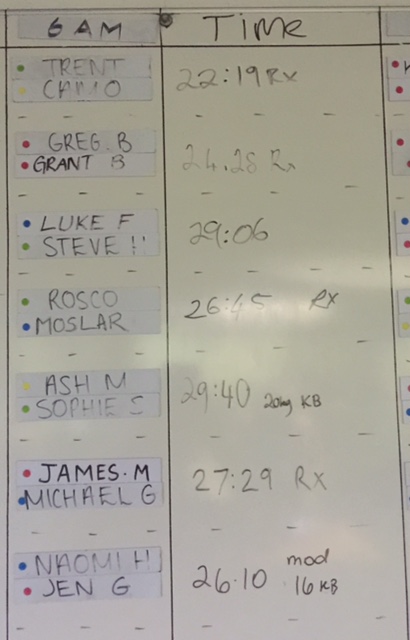 6AM Time
TRENT
CAMO 22:19 Rx
GREG. B
GRANT B 24.28 Rx
LUKE F
STEVE H 29:06
ROSCO
MOSLAR 26:45 RX
ASH M
SOPHIE S 29:40 20kg KB
JAMES. M
MICHAEL G 27:29 RX
NAOMI H
JEN G 26.10 mod
16 KB